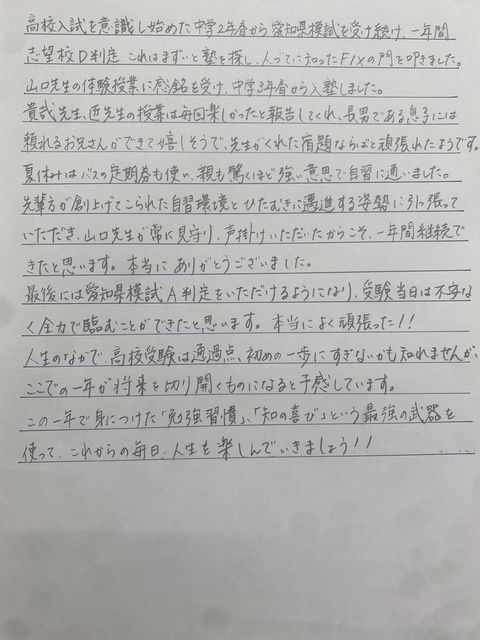 高校入試を意識し始めた中学2年春から愛知県模試を受け続け、一年間
志望校D判定 これはまずいと塾を探し、人づてに知ったFIXの門を叩きました。
山口先生の体験授業に感銘を受け、中学3年春から入塾しました。
貴哉先生、匠先生の授業は毎回楽しかったと報告してくれ、長男である息子には
頼れるお兄さんができて嬉しそうで、先生がくれた宿題ならばと頑張れたようです。
夏休みはバスの定期券も使い、親も驚くほど強い意思で自習に通いました。
先輩方が創上げてこられた自習環境とひたむきに邁進する姿勢に引っ張って
いただき、山口先生が常に見守り、声掛けいただいたからこそ、一年間継続で
きたと思います。本当に ありがとうございました。
最後には愛知県模試A判定をいただけるようになり、受験当日は不安な
く全力で臨むことができたと思います。本当によく頑張った!!
人生のなかで、高校受験は通過点、初めの一歩にすぎないかも知れませんが、
ここでの一年が将来を切り開くものになると予感しています。
この一年で身につけた「勉強習慣」、「知の喜び」という最強の武器を
使って、これからの毎日、人生を楽しんでいきましょう!!